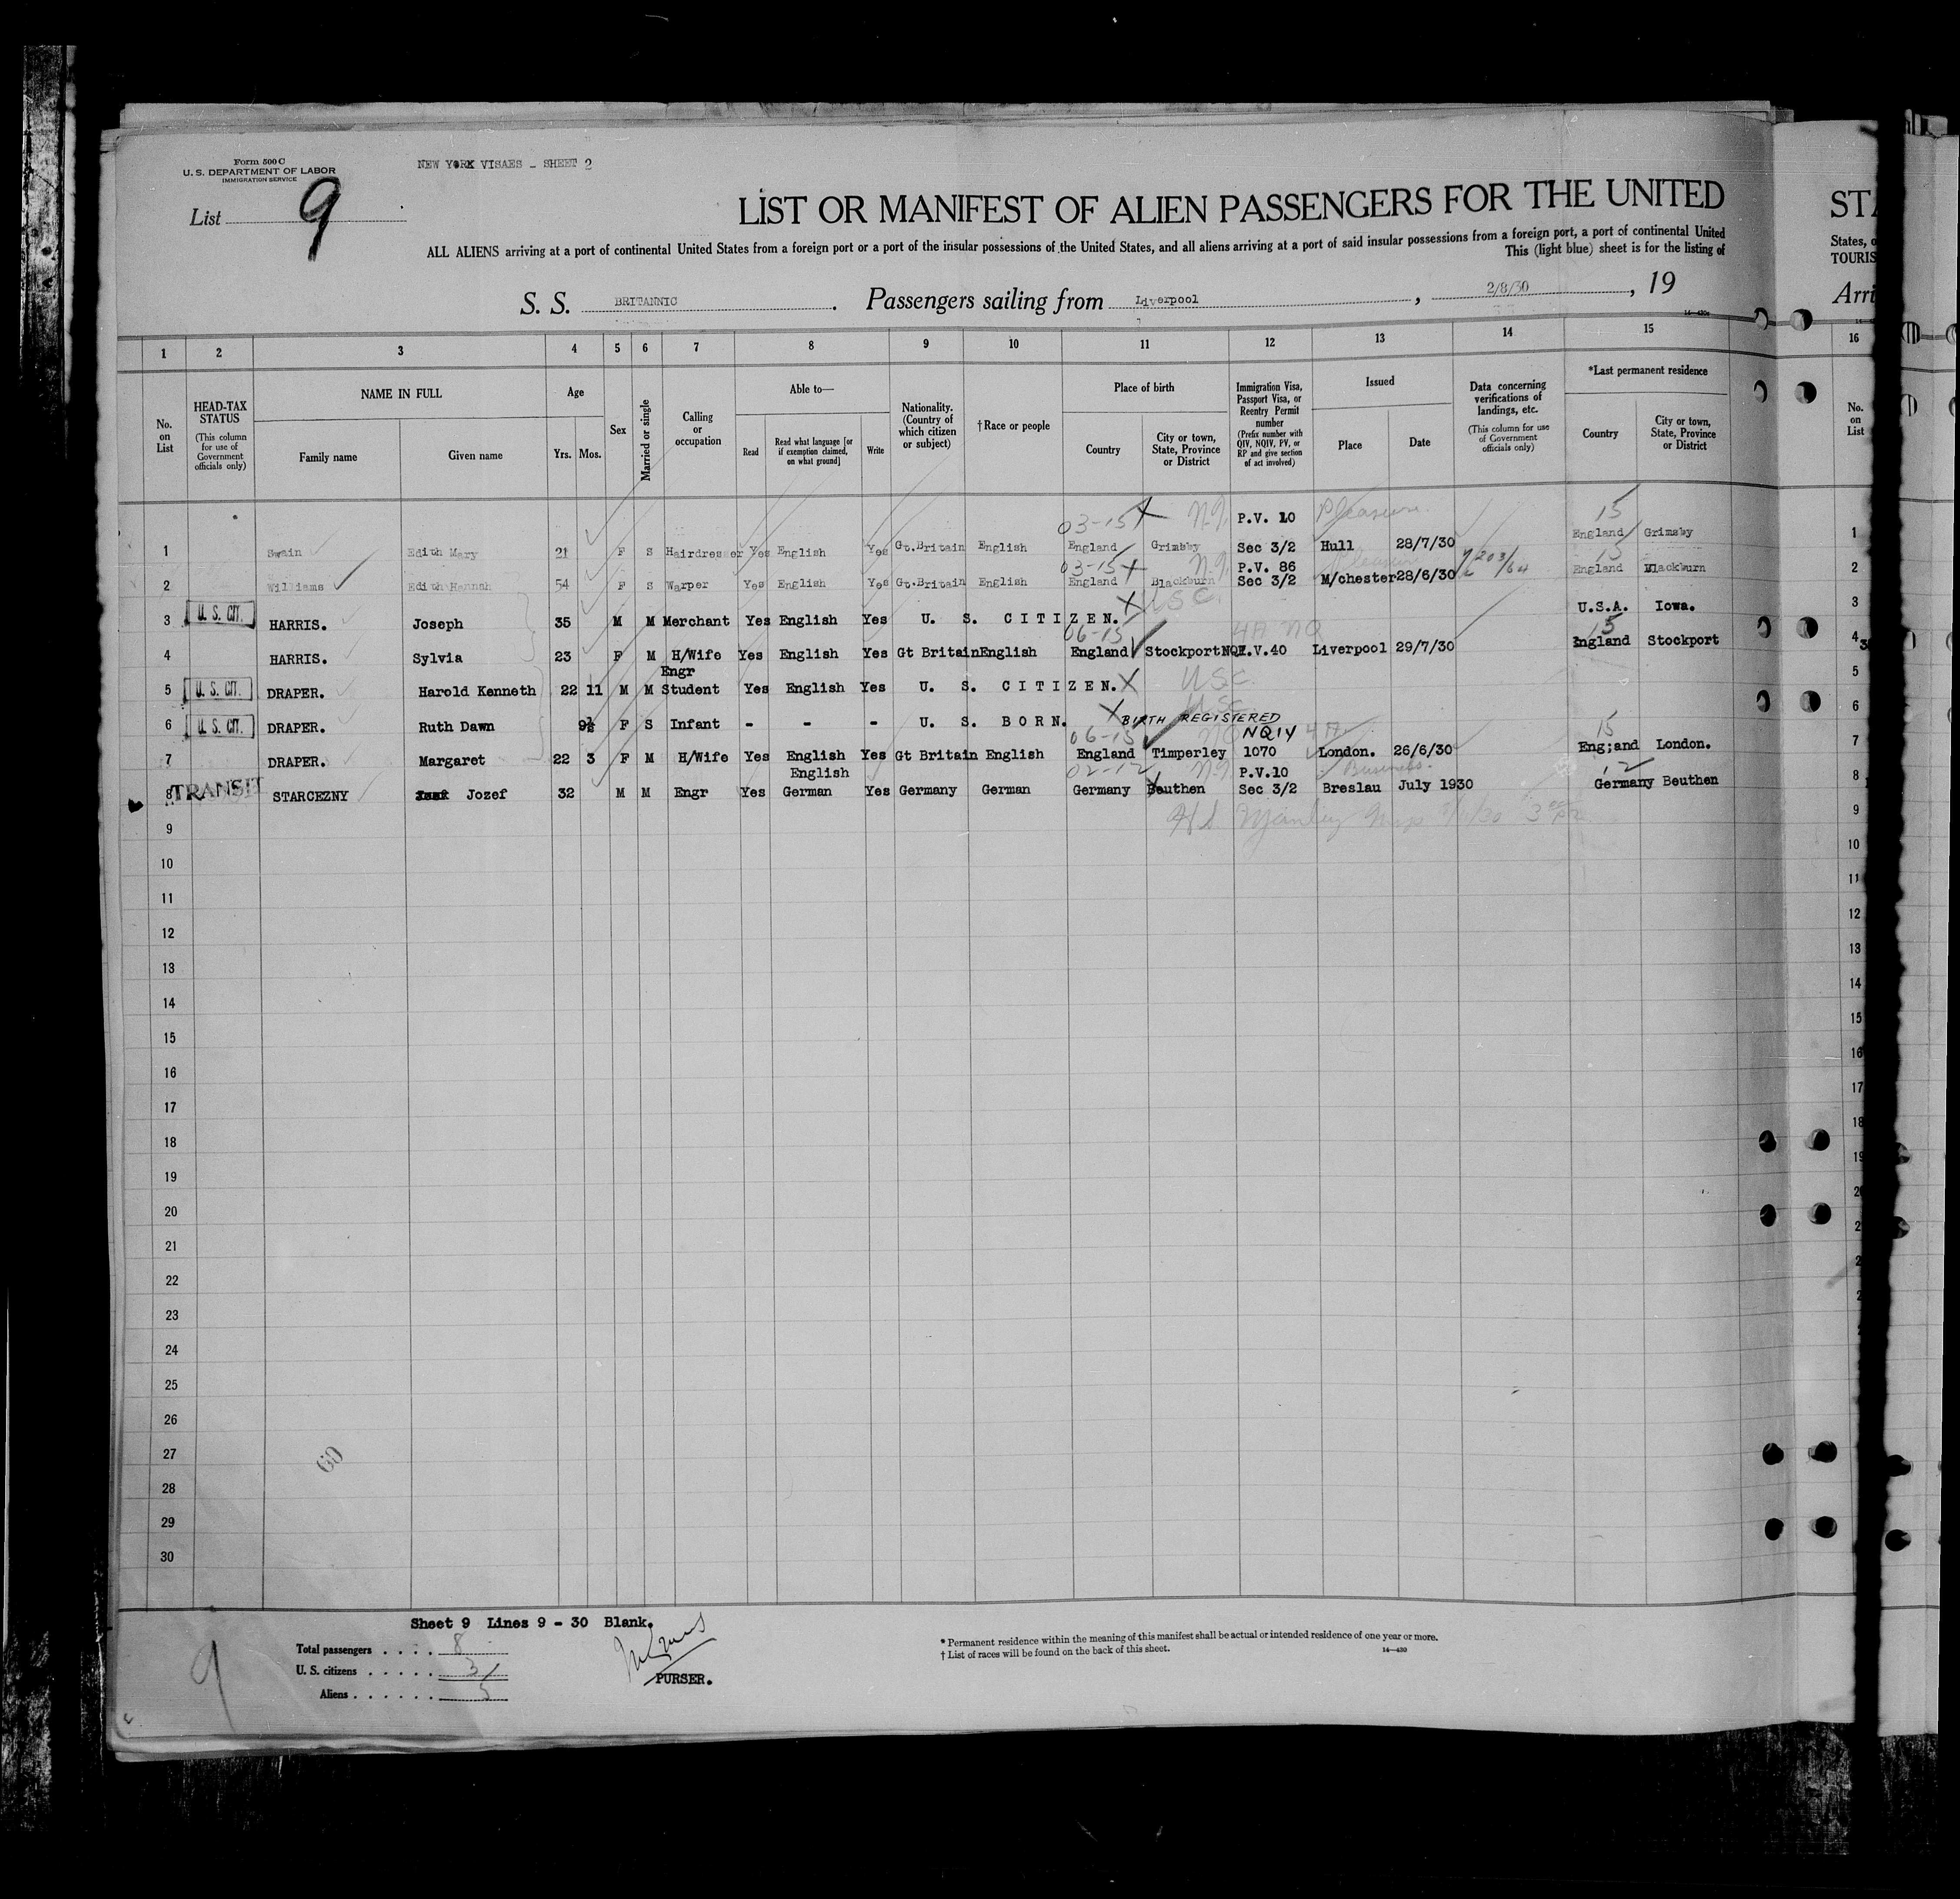 Form 500 C
U. S. DEPARTMENT OF LABOR
IMMIGRATION SERVICE
NEW YORK VISAES - SHEET 2
List 9
LIST OR MANIFEST OF ALIEN PASSENGERS FOR THE UNITED
ALL ALIENS arriving at a port of continental United States from a foreign port or a port of the insular possessions of the United States, and all aliens arriving at a port of said insular possessions from a foreign port, a port of continental United
This (light blue) sheet is for the listing of
S. S. BRITANNIC. Passengers sailing from Liverpool, 2/8/30, 19
States, o
TOURIS
Arri
1 2 3 4 5 6 7 8 9 10 11 12 13 14 15 16
No. on List
HEAD-TAX STATUS (This column for use of Government officials only)
NAME IN FULL
Family name Given name
Age
Yrs. Mos.
Sex
Married or single
Calling or occupation
Able to—
Read Read what language [or if exemption claimed, on what ground] Write
Nationality. (Country of which citizen or subject)
†Race or people
Place of birth
Country City or town, State, Province or District
Immigration Visa, Passport Visa, or Reentry Permit number (Prefix number with QIV, NQIV, PV, or RP and give section of act involved)
Issued
Place Date
Data concerning verifications of landings, etc. (This column for use of Government officials only)
*Last permanent residence
Country City or town, State, Province or District
No. on List
03-15 P.V. 10 Pleasure. 15
1 Swain Edith Mary 21 F S Hairdresser Yes English Yes Gt.Britain English England Grimsby Sec 3/2 Hull 28/7/30 England Grimsby 1
03-15 P.V. 86 15
2 Williams Edith Hannah 54 F S Warper Yes English Yes Gt.Britain English England Blackburn Sec 3/2 M/chester 28/6/30 England Blackburn 2
USC.
3 U. S. CIT. HARRIS. Joseph 35 M M Merchant Yes English Yes U. S. CITIZEN. U.S.A. Iowa. 3
06-15 4A NQ 15
4 HARRIS. Sylvia 23 F M H/Wife Yes English Yes Gt Britain English England Stockport .V.40 Liverpool 29/7/30 England Stockport 4
Engr
5 U. S. CIT. DRAPER. Harold Kenneth 22 11 M M Student Yes English Yes U. S. CITIZEN. USC. 5
USC.
6 U. S. CIT. DRAPER. Ruth Dawn 9½ F S Infant - - - U. S. BORN. BIRTH REGISTERED 6
06-15 NQIV 4A 15
7 DRAPER. Margaret 22 3 F M H/Wife Yes English Yes Gt Britain English England Timperley 1070 London. 26/6/30 Eng;and London. 7
English 02-12 P.V.10 Business. 12
8 TRANSIT STARCEZNY Jozef 32 M M Engr Yes German Yes Germany German Germany Beuthen Sec 3/2 Breslau July 1930 Germany Beuthen 8
9 9
10 10
11 11
12 12
13 13
14 14
15 15
16 16
17 17
18 18
19
20
21
22
23
24
25
26
27
60
28
29
30
Sheet 9 Lines 9 - 30 Blank.
Total passengers . . . . 8
U. S. citizens . . . . . 3
Aliens . . . . . . 5
9
PURSER.
* Permanent residence within the meaning of this manifest shall be actual or intended residence of one year or more.
† List of races will be found on the back of this sheet.
14—430